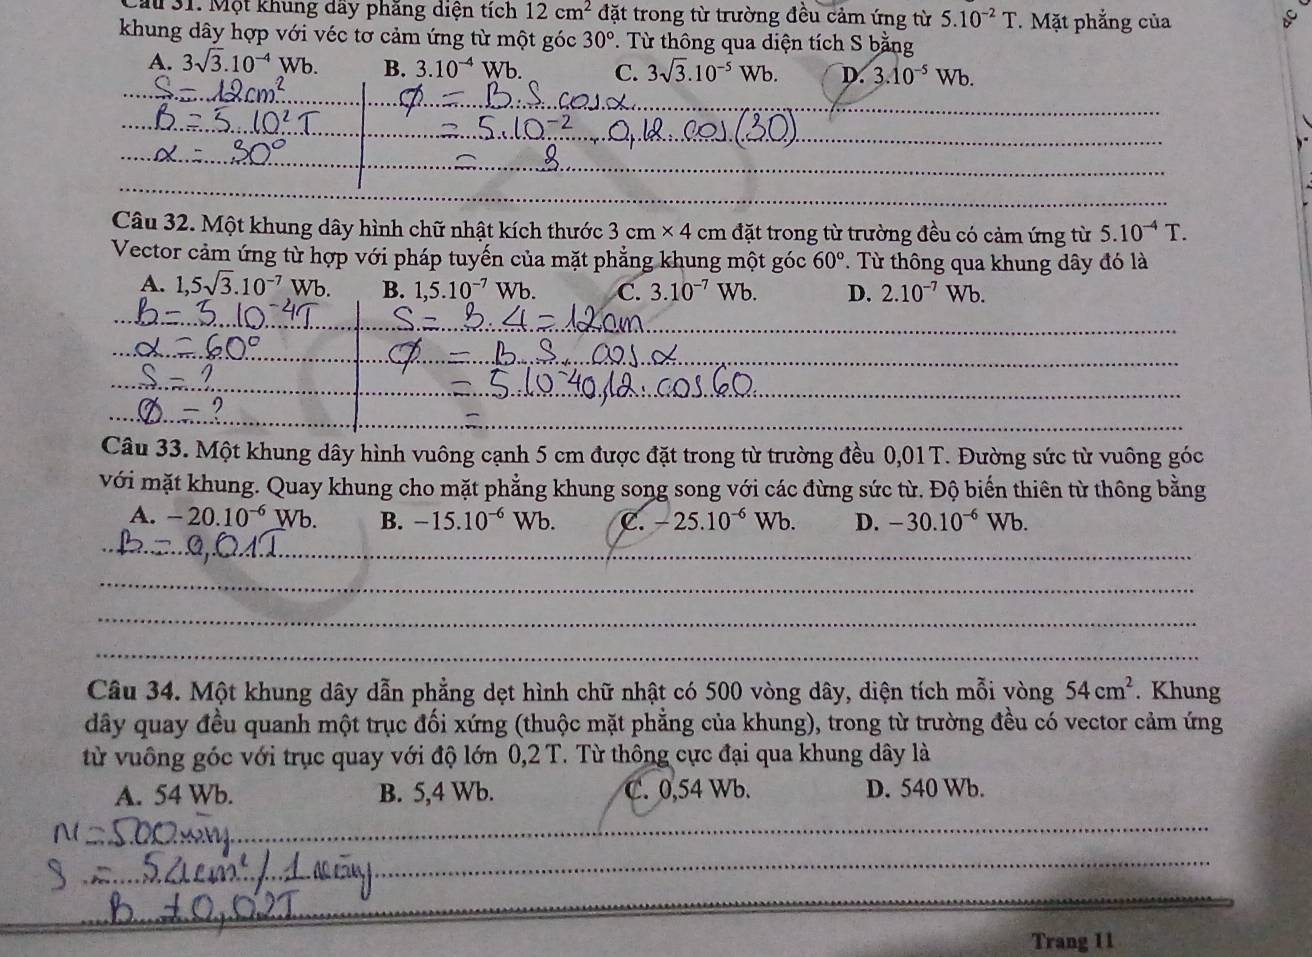 Câu 31. Một khung dây phẳng diện tích 12 cm² đặt trong từ trường đều cảm ứng từ 5.10⁻² T. Mặt phẳng của
khung dây hợp với véc tơ cảm ứng từ một góc 30°. Từ thông qua diện tích S bằng
A. 3√3.10⁻⁴ Wb. B. 3.10⁻⁴ Wb. C. 3√3.10⁻⁵ Wb. D. 3.10⁻⁵ Wb.
S = 12cm² φ = B.S cosα
B = 5.10² T = 5.10⁻² . 0,12. cos(30)
α = 30° =
Câu 32. Một khung dây hình chữ nhật kích thước 3 cm × 4 cm đặt trong từ trường đều có cảm ứng từ 5.10⁻⁴ T.
Vector cảm ứng từ hợp với pháp tuyến của mặt phẳng khung một góc 60°. Từ thông qua khung dây đó là
A. 1,5√3.10⁻⁷ Wb. B. 1,5.10⁻⁷ Wb. C. 3.10⁻⁷ Wb. D. 2.10⁻⁷ Wb.
B = 5.10⁻⁴T S = 3.4 = 12cm
α = 60° φ = B.S.cosα
S = ? = 5.10⁻⁴0,12.cos60
φ = ? =
Câu 33. Một khung dây hình vuông cạnh 5 cm được đặt trong từ trường đều 0,01T. Đường sức từ vuông góc
với mặt khung. Quay khung cho mặt phẳng khung song song với các đừng sức từ. Độ biến thiên từ thông bằng
A. −20.10⁻⁶ Wb. B. −15.10⁻⁶ Wb. C. −25.10⁻⁶ Wb. D. −30.10⁻⁶ Wb.
B = 0,01T
Câu 34. Một khung dây dẫn phẳng dẹt hình chữ nhật có 500 vòng dây, diện tích mỗi vòng 54 cm². Khung
dây quay đều quanh một trục đối xứng (thuộc mặt phẳng của khung), trong từ trường đều có vector cảm ứng
từ vuông góc với trục quay với độ lớn 0,2 T. Từ thông cực đại qua khung dây là
A. 54 Wb. B. 5,4 Wb. C. 0,54 Wb. D. 540 Wb.
N = 500 vòng
S = 54cm² / 1 vòng
B = 0,02T
Trang 11